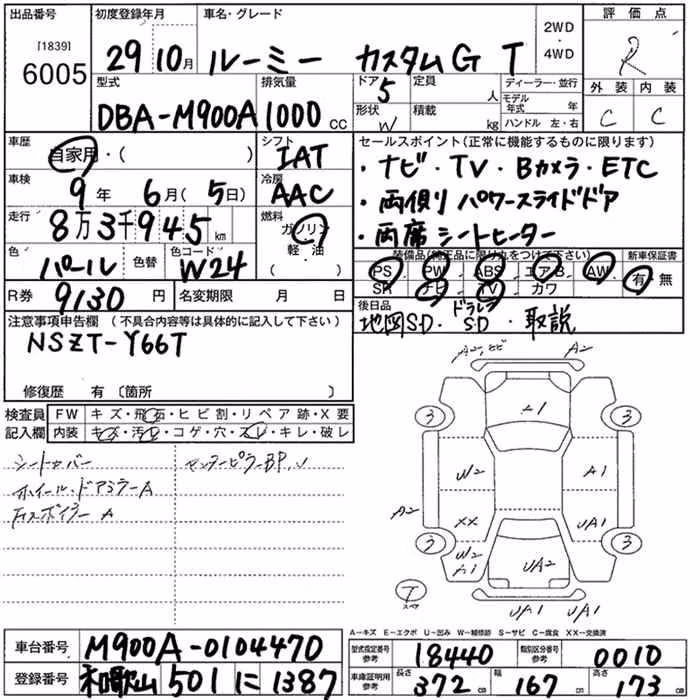 出品番号 [1839] 6005
初度登録年月 29 10月
車名・グレード ルーミー カスタムG T
2WD・4WD
評価点 R
外装 C 内装 C
型式 DBA-M900A
排気量 1000 cc
ドア 5
形状 W
定員 人
積載 kg
ディーラー・並行
モデル年式 年
ハンドル 左・右
車歴 自家用・( )
シフト IAT
車検 9年 6月(5日)
冷房 AAC
走行 8万3千945km
燃料 ガソリン 軽・油 ( )
色 パール 色替
色コード W24
R券 9130円
名変期限 月 日
セールスポイント(正常に機能するものに限ります)
・ナビ・TV・Bカメラ・ETC
・両側パワースライドドア
・両席シートヒーター
装備品(純正品に限り丸をつけて下さい)
新車保証書
PS PW ABS エアB AW 有・無
SR ナビ TV カワ
後日品
地図SD・ドラレコSD・取説
注意事項申告欄 (不具合内容等は具体的に記入して下さい)
NSZT-Y66T
修復歴 有〔箇所 〕
検査員記入欄
FW キズ・飛石・ヒビ割・リペア跡・X要
内装 キズ・汚レ・コゲ・穴・スレ・キレ・破レ
シートカバー
センターピラーBP、U
ホイール・ドアミラーA
A2
A2
A1
3
3
W2
A1
A2
XX
UA1
3
3
W2
A1
UA2
T
スペア
UA1
UA1
A−キズ E−エクボ U−凹み W−補修跡 S−サビ C−腐食 XX−交換済
車台番号 M900A-0104470
型式指定番号参考 18440
類別区分番号参考 0010
登録番号 和歌山 501 に 1387
車庫証明用参考 長さ 372 cm 幅 167 cm 高さ 173 cm